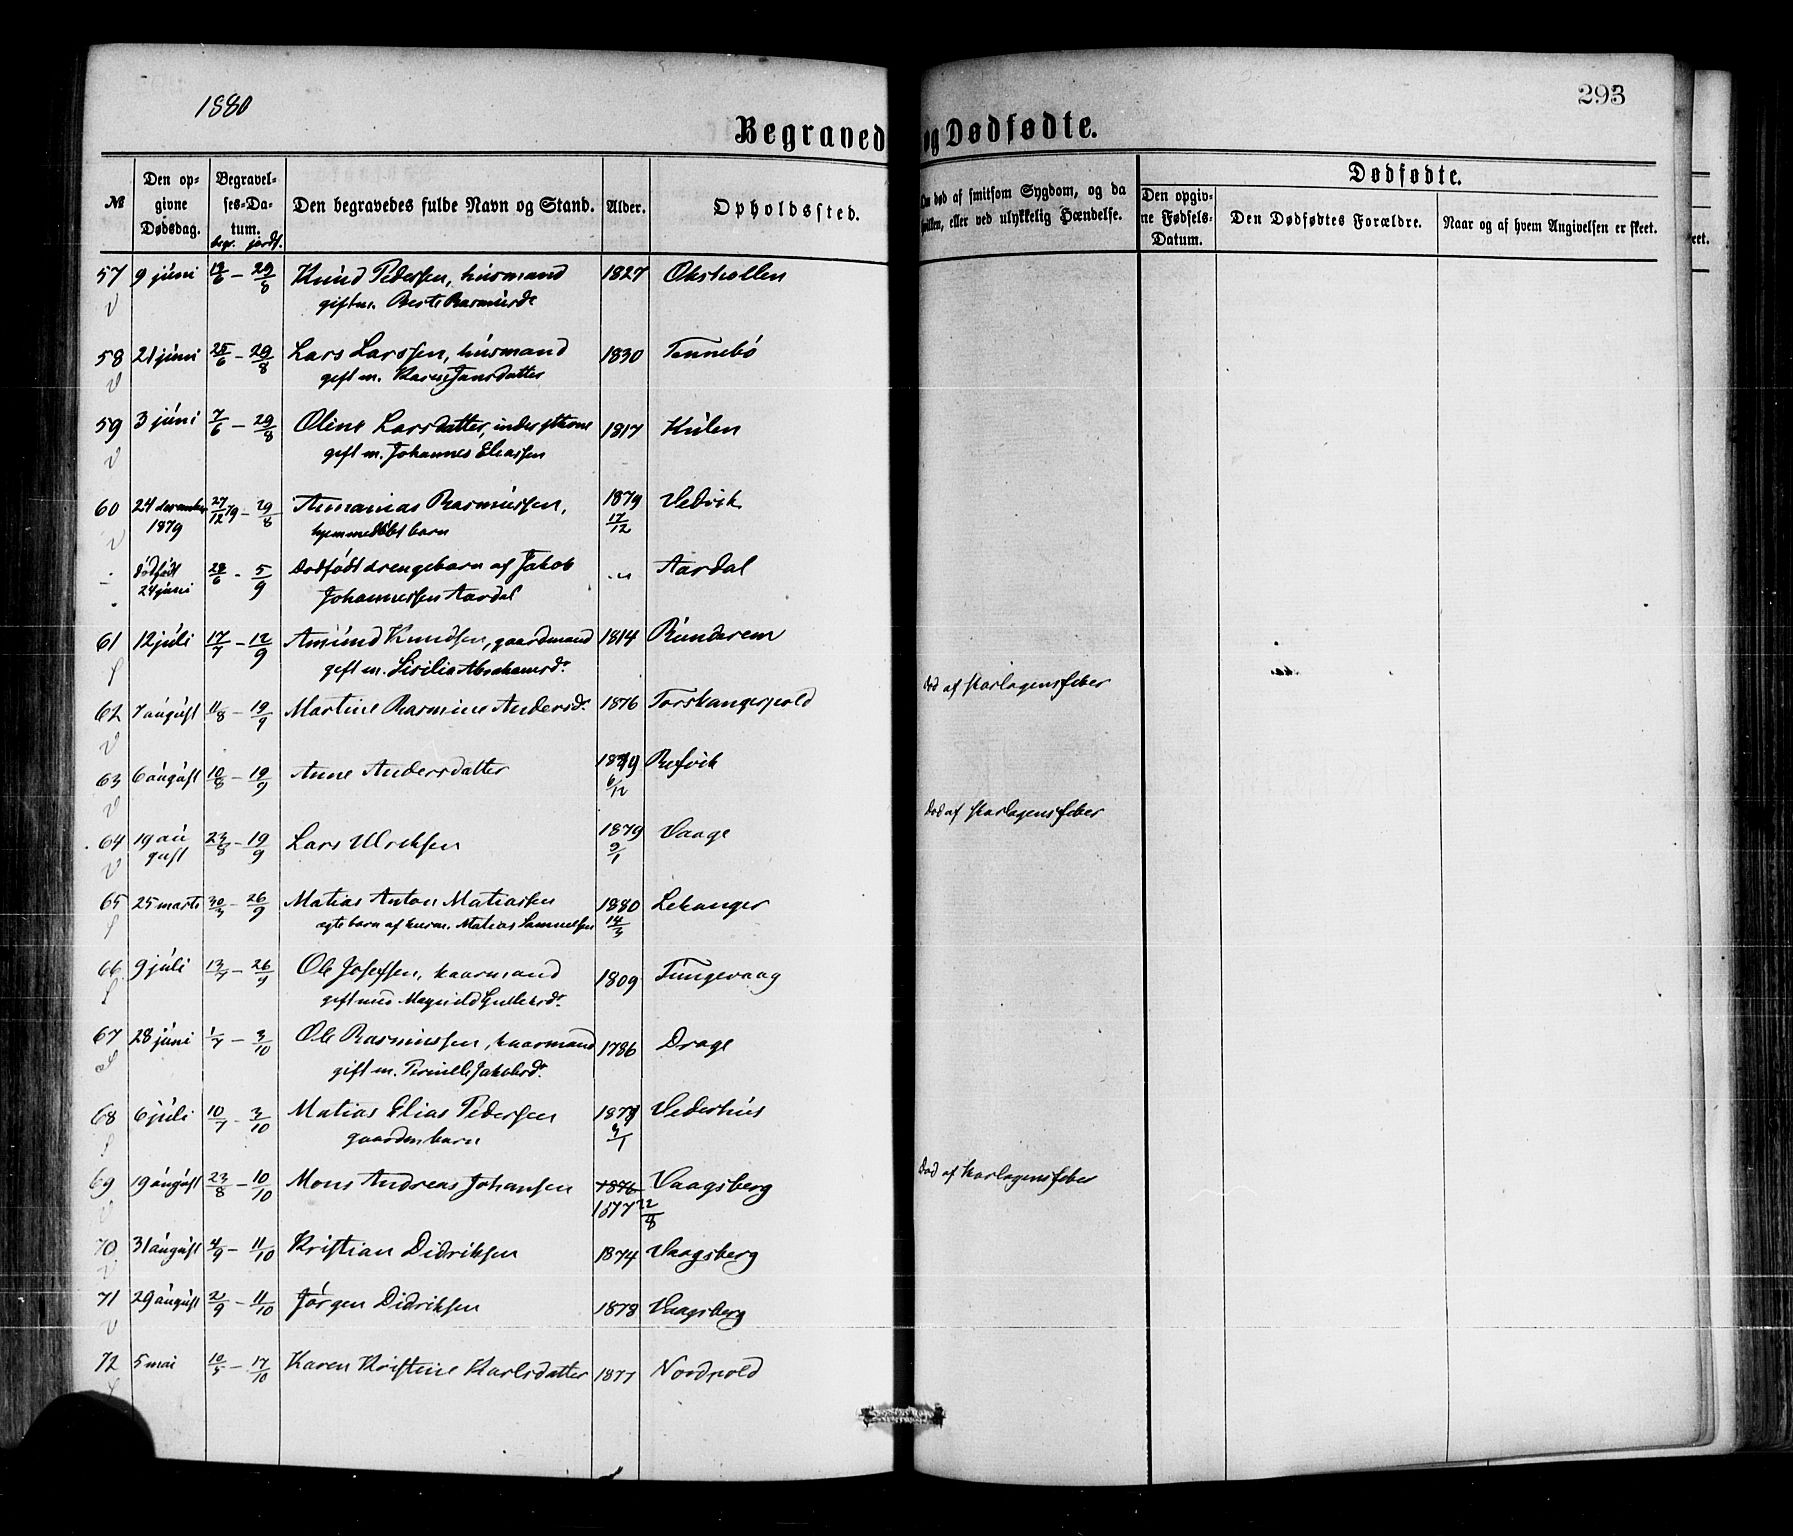 1880
293
Begravede og Dødfødte.
№
Den opgivne Dødsdag.
Begravelses-Datum.
begr. jordf.
Den begravedes fulde Navn og Stand.
Alder.
Opholdssted.
død af smitsom Sygdom, og da
eller ved ulykkelig Hændelse.
Dødfødte.
Den opgivne Fødsels-Datum.
Den Dødfødtes Forældre.
Naar og af hvem Angivelsen er skeet.
57 9 juni 12/6 - 29/8 Knud Pedersen, husmand 1827 Okshollen
gift m. Berte Rasmusd.
58 21 juni 25/6 - 29/8 Lars Larssen, husmand 1830 Tennebö
gift m. Karne Jansdatter
59 3 juni 7/6 - 29/8 Oline Larsdatter, inderstkone 1817 Kulen
gift m. Johannes Eliassen
60 24 december 1879 27/12 79 - 29/8 Annanias Rasmussen, 1879 17/12 Vedvik
hjemmedöbt barn
dödfödt 24 juni 28/6 - 5/9 Dödfödt drengebarn af Jakob " Aardal
Johannessen Aardal
61 12 juli 17/7 - 12/9 Amund Knudsen, gaardmand 1814 Runderem
gift m. Lisilia Abrahamsd.
62 7 august 11/8 - 19/9 Martine Rasmine Andersd. 1876 Torskangerpold
Död af skarlagensfeber
63 6 august 10/8 - 19/9 Anne Andersdatter 1879 6/12 Refvik
64 19 august 23/8 - 19/9 Lars Ulriksen 1879 9/1 Vaage
Död af skarlagensfeber
65 25 marts 30/3 - 26/9 Matias Anton Matiassen 1880 14/3 Lekanger
ægte barn af husm. Matias Samuelsen
66 9 juli 13/7 - 26/9 Ole Josefsen, kaarmand 1809 Tungevaag
gift med Magnild Gullaksd.
67 28 juni 1/7 - 3/10 Ole Rasmussen, kaarmand 1786 Drage
gift m. Pernille Jakobsd.
68 6 juli 10/7 - 3/10 Matias Elias Pedersen Vederhus
gaardm. barn
69 19 august 23/8 - 10/10 Mons Andreas Johansen 1876 Vaagsberg
1877 22/8
Död af skarlagensfeber
70 31 august 4/9 - 11/10 Kristian Didriksen 1874 Vaagsberg
71 29 august 2/9 - 11/10 Jörgen Didriksen 1878 Vaagsberg
72 5 mai 10/5 - 17/10 Karen Kristine Karlsdatter 1877 Nordpold